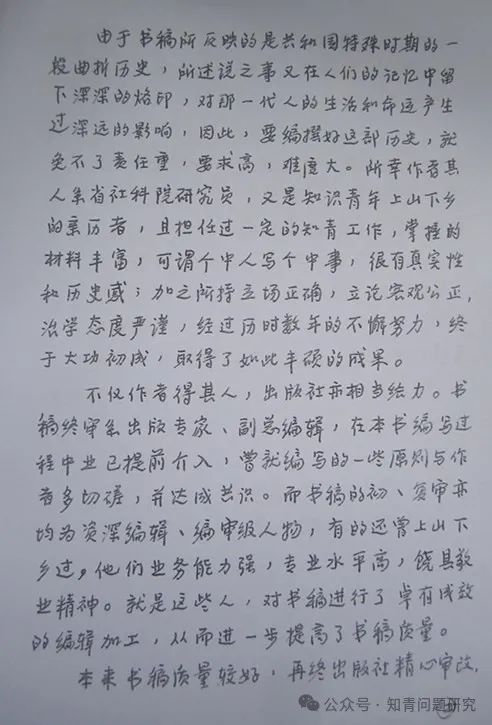 由于书稿所反映的是共和国特殊时期的一
段曲折历史，所述说之事又在人们的记忆中留
下深深的烙印，对那一代人的生活和命运产生
过深远的影响，因此，要编撰好这部历史，就
免不了责任重，要求高，难度大。所幸作者其
人系省社科院研究员，又是知识青年上山下乡
的亲历者，且担任过一定的知青工作，掌握的
材料丰富，可谓个中人写个中事，很有真实性
和历史感；加之所持立场正确，立论客观公正，
治学态度严谨，经过历时数年的不懈努力，终
于大功初成，取得了如此丰硕的成果。
不仅作者得其人，出版社亦相当给力。书
稿终审系出版专家、副总编辑，在本书编写过
程中业已提前介入，曾就编写的一些原则与作
者多切磋，并达成共识。而书稿的初、复审亦
均为资深编辑、编审级人物，有的还曾上山下
乡过。他们业务能力强，专业水平高，饶具敬
业精神。就是这些人，对书稿进行了卓有成效
的编辑加工，从而进一步提高了书稿质量。
本来书稿质量较好，再终出版社精心审改，
公众号·知青问题研究